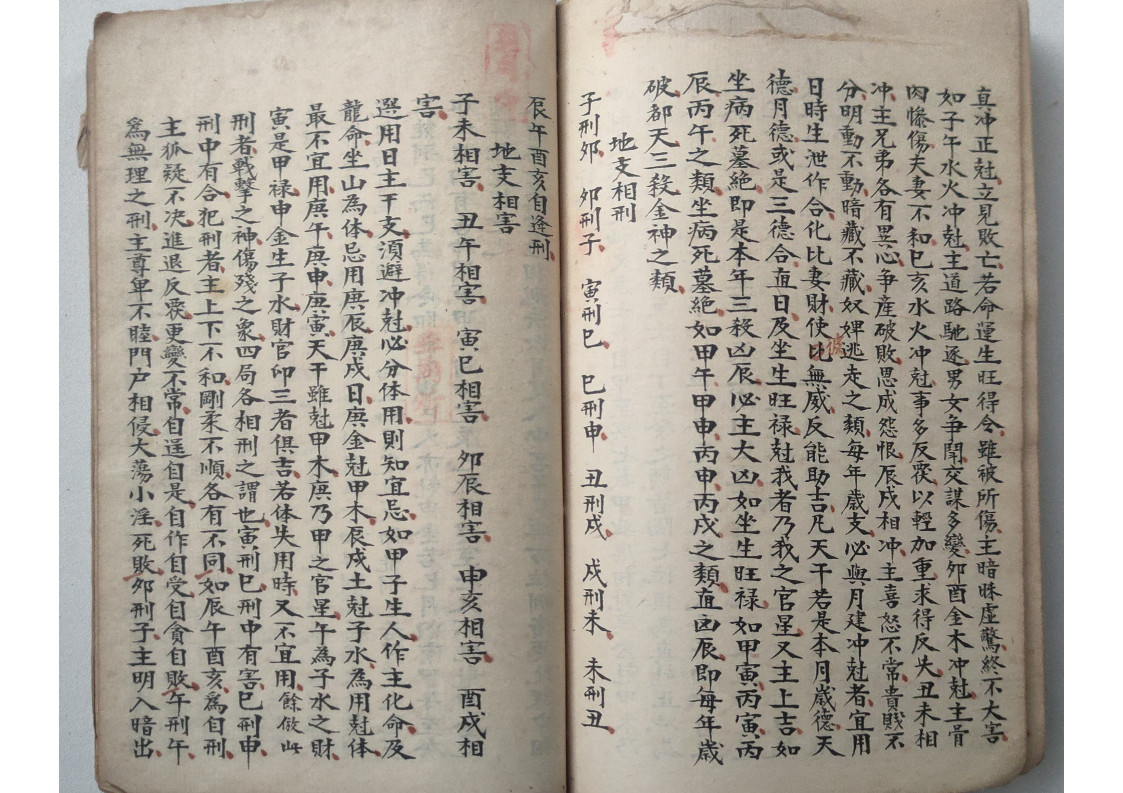 真冲正尅立見敗亡若命運生旺得令雖被所傷主暗昧虛驚終不大害
如子午水火冲尅主道路馳逐男女爭鬥交謀多變夘酉金木冲尅主骨
肉慘傷夫妻不和巳亥水火冲尅事多反覆以輕加重求得反失丑未相
冲主兄弟各有異心争產破敗思成怨恨辰戌相冲主喜怒不常貴賤不
分明動不動暗藏不藏奴婢逃走之類每年歲支必與月建冲尅者宜用
日時生泄作合化比妻財使彼無威反能助吉凡天干若是本月歲德天
德月德或是三德合直日及坐生旺禄尅我者乃我之官星又主上吉如
坐病死墓絕即是本年三殺凶辰必主大凶如坐生旺禄如甲寅丙寅丙
辰丙午之類坐病死墓絕如甲午甲申丙申丙戌之類直凶辰即每年歲
破都天三殺金神之類
地支相刑
子刑夘 夘刑子 寅刑巳 巳刑申 丑刑戌 戌刑未 未刑丑
辰午酉亥自逢刑
地支相害
子未相害 丑午相害 寅巳相害 夘辰相害 申亥相害 酉戌相
害
選用日主干支須避冲尅必分体用則知宜忌如甲子生人作主化命及
龍命坐山為体忌用庚辰庚戌日庚金尅甲木辰戌土尅子水為用尅体
最不宜用庚午庚申庚寅天干雖尅甲木庚乃甲之官星午為子水之財
寅是甲禄申金生子水財官印三者俱吉若体失用時又不宜用餘倣此
刑者戰擊之神傷殘之象四局各相刑之謂也寅刑巳刑中有害巳刑申
刑中有合犯刑者主上下不和剛柔不順各有不同如辰午酉亥為自刑
主狐疑不决進退反覆更變不常自逞自是自作自受自貪自敗午刑午
為無理之刑主尊卑不睦門户相侵大蕩小淫死敗夘刑子主明入暗出